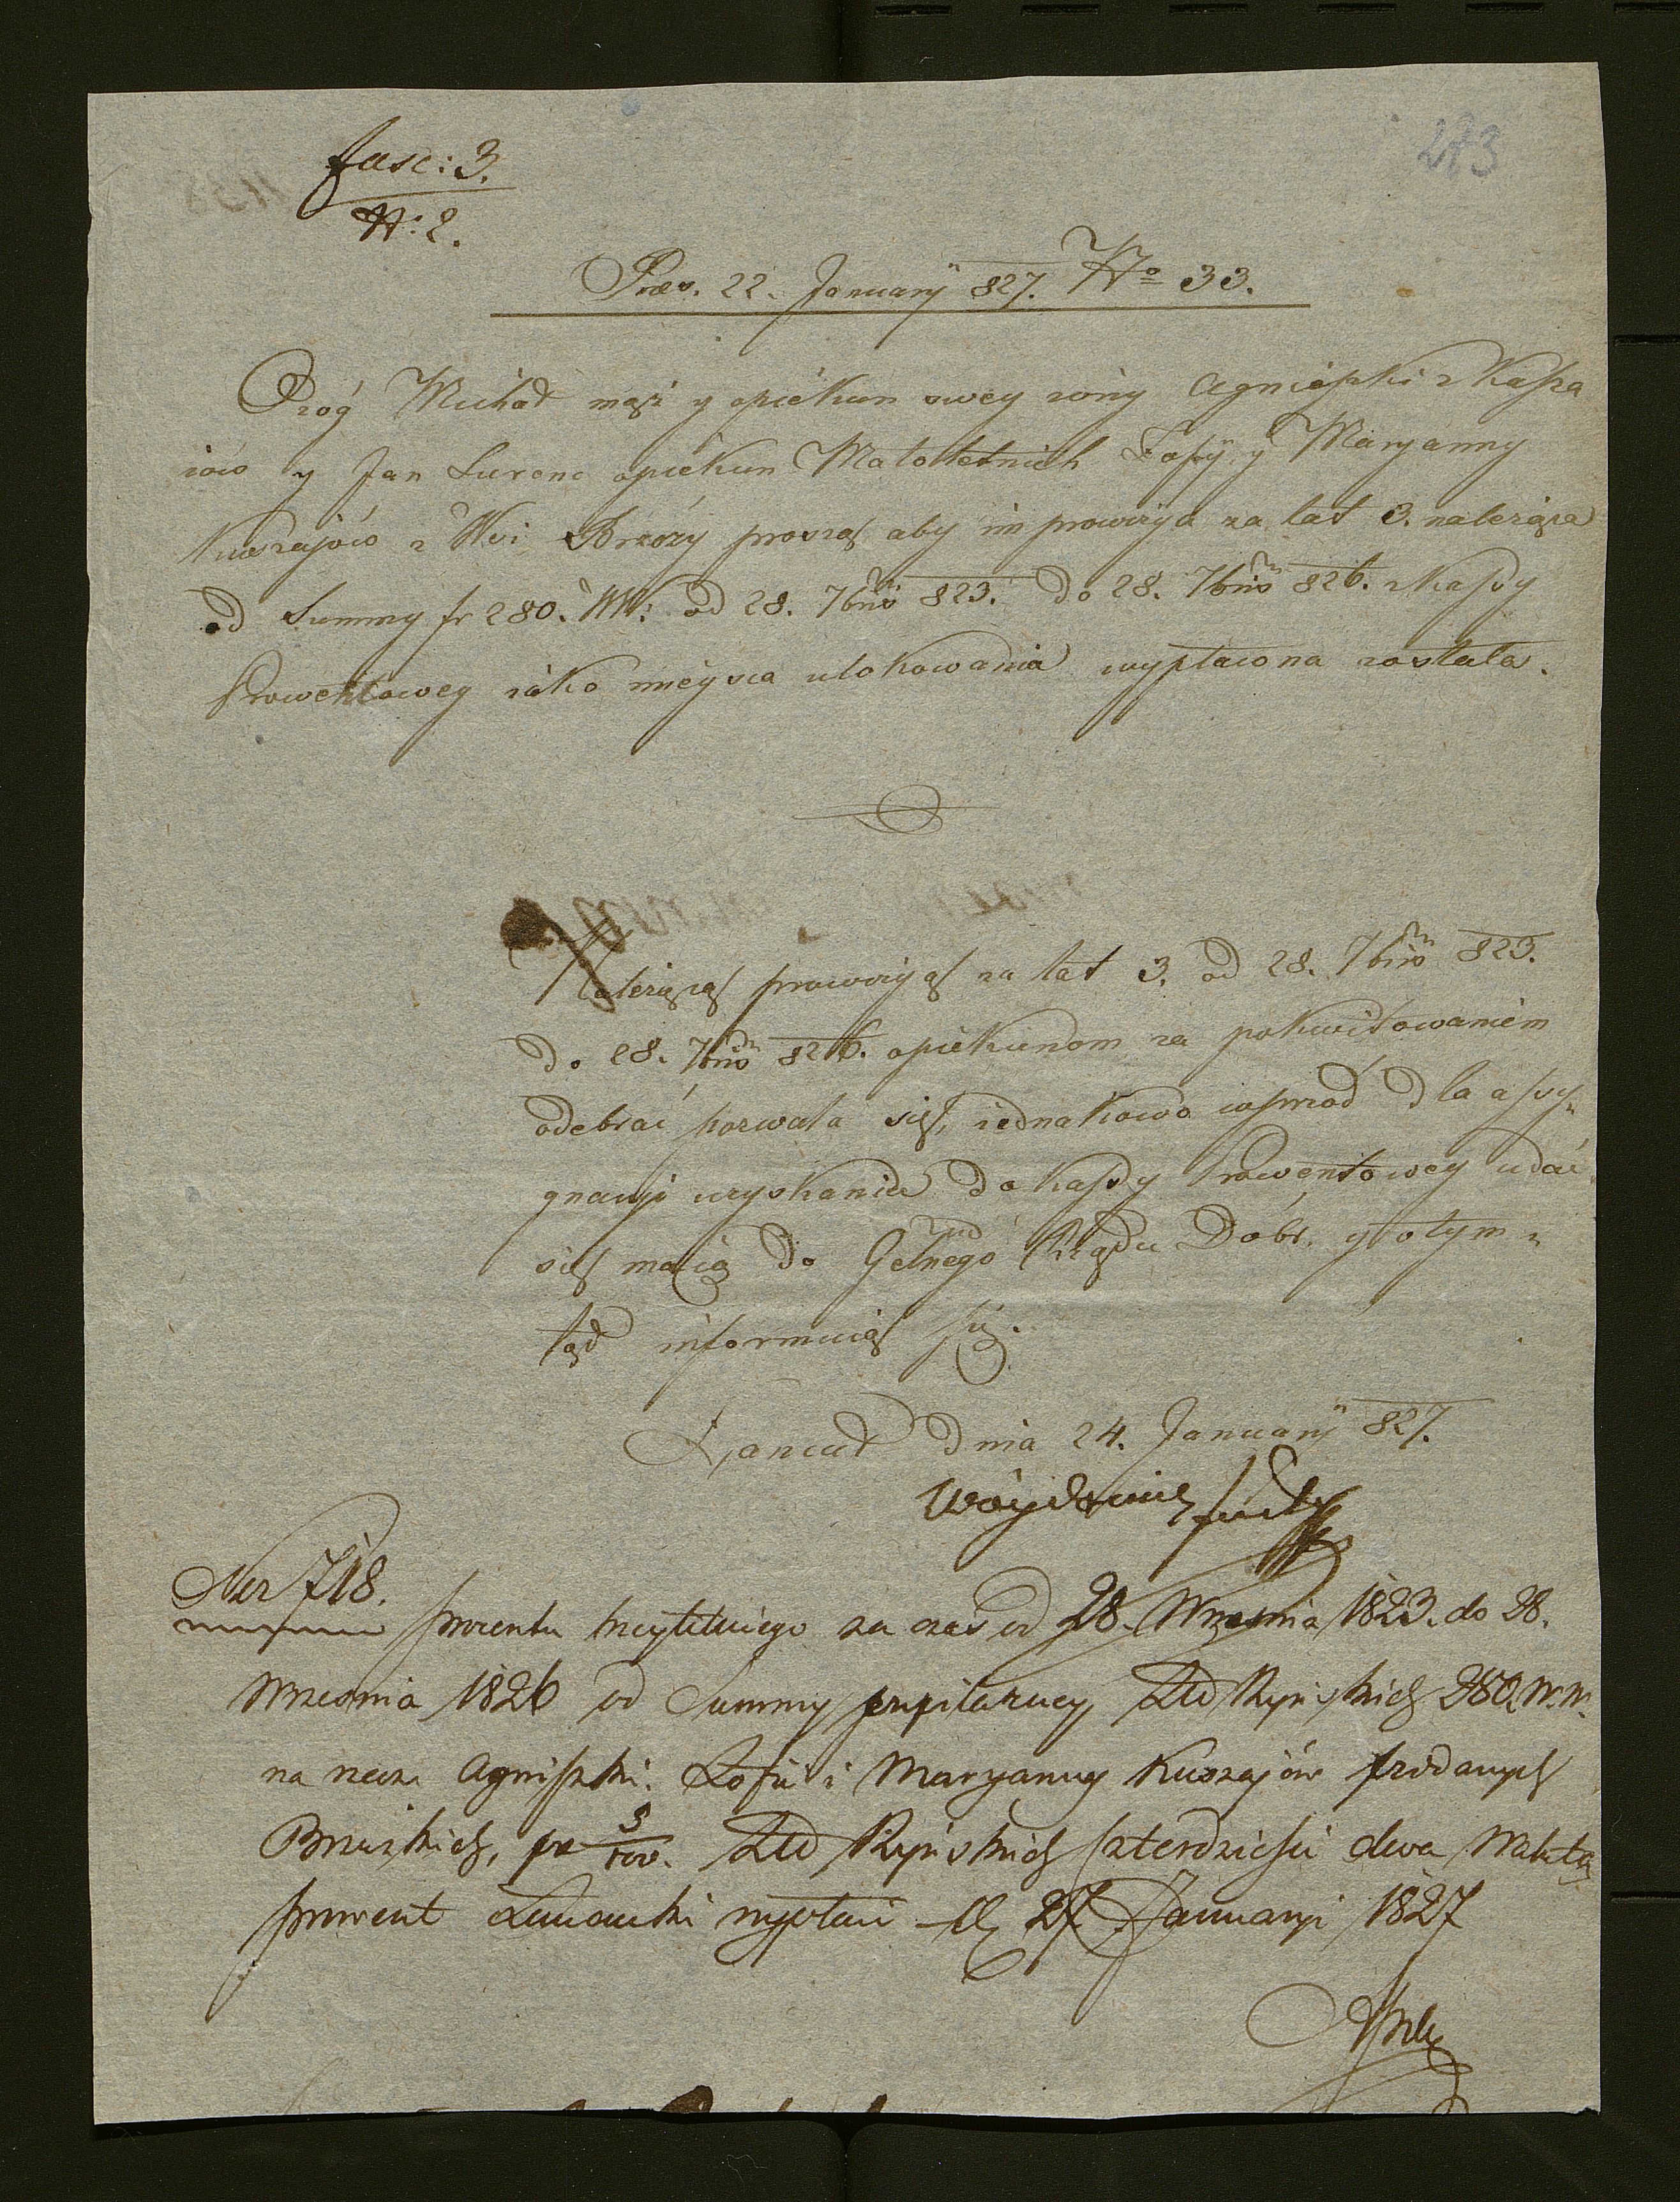 273
Fasc: 3.
N: 2.
Præs. 22. January 827. No 33.
Prog Michał mąż y opiekun swey żony Agnieszki z Kusza
iow y Jan Surenc opiekun Małoletnich Zofyi y Maryanny
Kuszajów z Wsi Brzozy proszą aby im prowizya za lat 3. należąca
od Summy fr 280. WW: od 28. 7bris 823. do 28. 7bris 826. z Kassy
Prowentowey iako mieysca ulokowania wypłacona została.
Należącą prowizyą za lat 3. od 28. 7bris 823.
do 28. 7bris 826. opiekunom za pokwitowaniem
odebrać pozwala się, iednakowo wprzod dla assy„
gnacyi uzyskania do Kassy Prowentowey udać
się maią do Gelnego Rządu Dóbr. y o tym z
tąd informuią się.
Łancut dnia 24. January 827.
Ner 718.
procentu trzyletniego za czas od 28. Września 1823. do 28.
Września 1826 od Summy pupilarney Zło Ryńskich 280 W.W.
na rzecz Agniszki. Zofii i Maryanny Kuszajów poddanych
Brzuskich, po 5/100. Zło Ryńskich czterdzieści dwa Walutą
prowent Łancucki wypłaci 27 January 1827